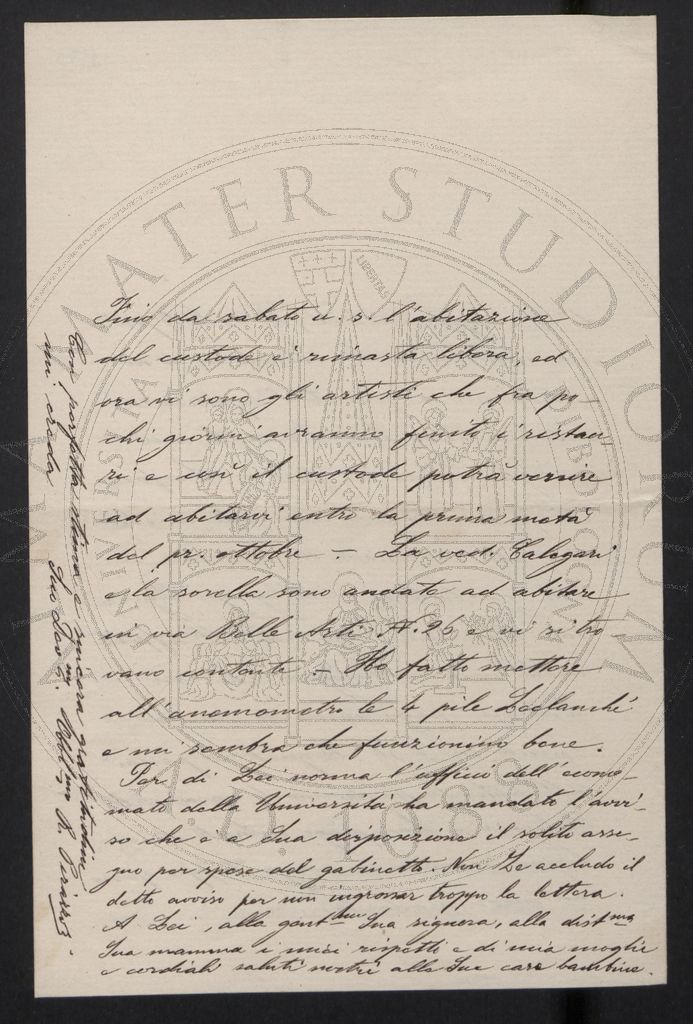 Fino da sabato u. s. l'abitazione
del custode è rimasta libera, ed
ora vi sono gli artisti che fra po-
chi giorni avranno finito i restau-
ri e così il custode potrà venire
ad abitarvi entro la prima metà
del pr. ottobre. - La ved. Calegari
e la sorella sono andate ad abitare
in via Belle Arti N. 26 e vi si tro-
vano contente. - Ho fatto mettere
all'anemometro le 4 pile Leclanché
e mi sembra che funzionino bene.
Per di Lei norma l'ufficio dell'econo-
mato della Università ha mandato l'avvi-
so che è a Sua disposizione il solito asse-
gno per spese del gabinetto. Non Le accludo il
detto avviso per non ingrossar troppo la lettera.
A Lei, alla gent.ma Sua signora, alla dist.ma
Sua mamma i miei rispetti e di mia moglie
e cordiali saluti nostri alle Sue care bambine.
Con perfetta stima e sincera gratitudine
mi creda
Suo Dev.
ALMA MATER STUDIORUM
A.D. 1088
LIBERTAS